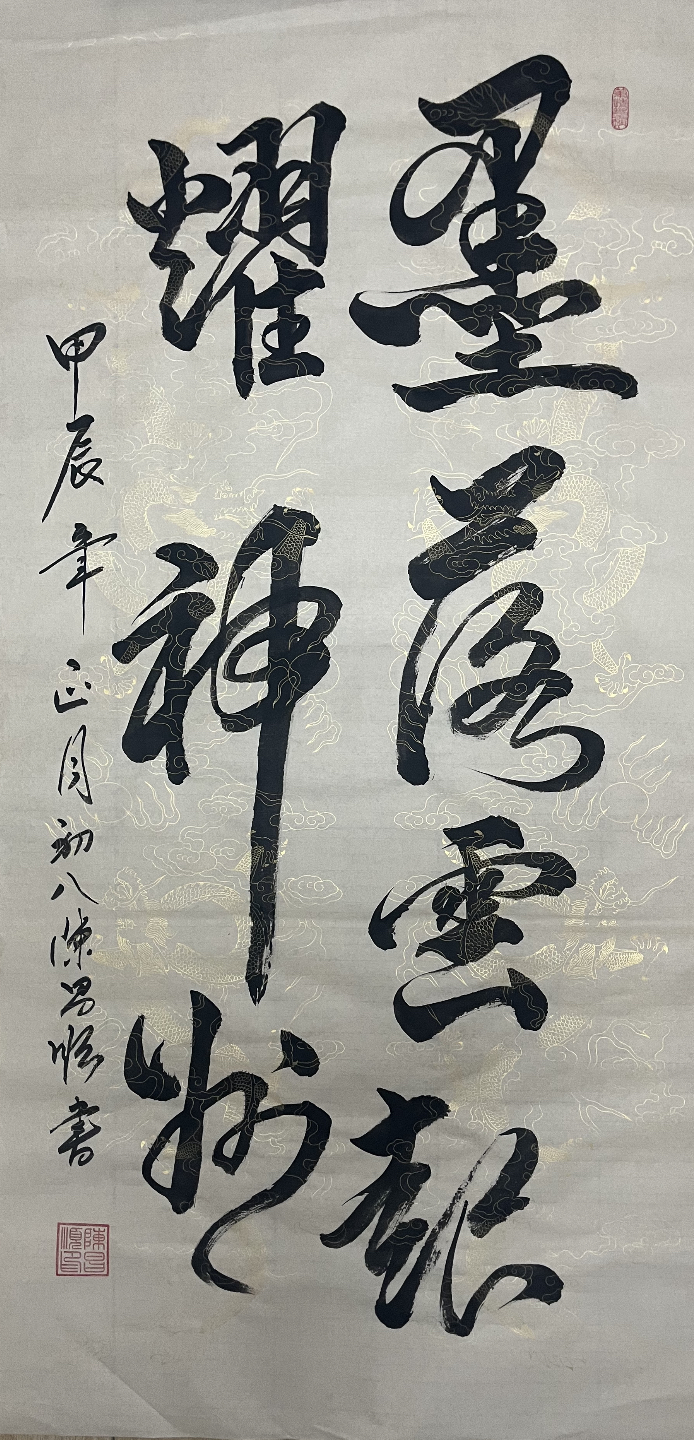 墨落雲起
耀神州
甲辰年正月初八陳昌順書
陳昌順印